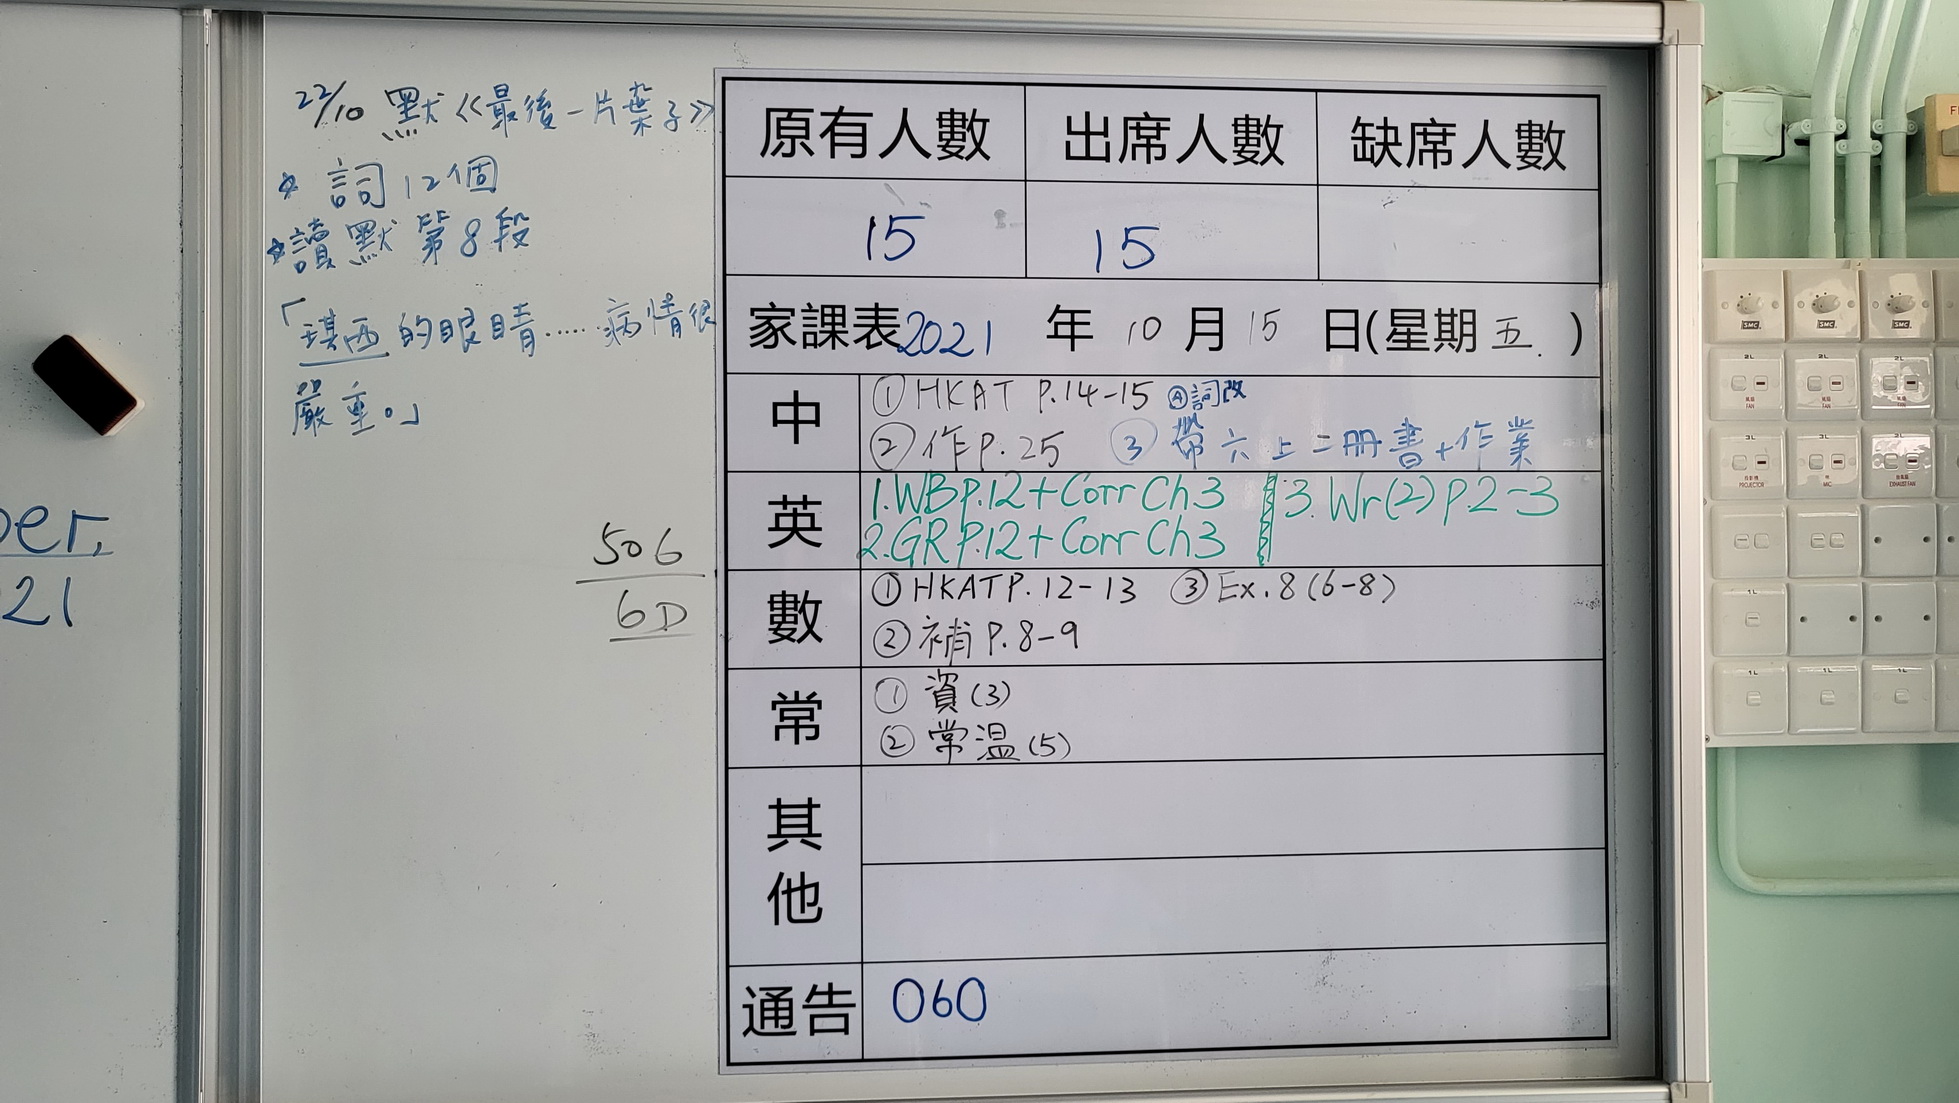 22/10 默《最後一片葉子》
* 詞12個
* 讀默 第8段
「琪西的眼睛……病情很
嚴重。」
er,
21
506
6D
原有人數 出席人數 缺席人數
15 15
家課表2021年10月15日(星期五.)
中 ① HKAT P.14-15 Ⓐ詞改
② 作P.25 ③ 帶六上二冊書+作業
英 1.WBP.12+Corr Ch3 3. Wr(2) P.2-3
2.GRP.12+Corr Ch3
數 ① HKATP.12-13 ③ Ex.8(6-8)
② 補P.8-9
常 ① 資(3)
② 常溫(5)
其他
通告 060
SMC SMC SMC
2L 2L 2L
FAN FAN FAN
3L 3L 3L
PROJECTOR MIC EXHAUST FAN
1L
1L 1L 1L